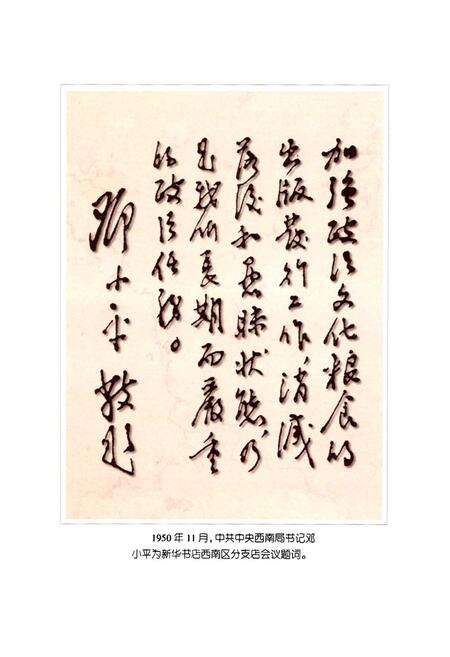 加强政治文化粮食的
出版发行工作，消灭
落后和愚昧状态，乃
是我们长期而严重
的政治任务。
邓小平 敬题
1950 年 11 月，中共中央西南局书记邓
小平为新华书店西南区分支店会议题词。